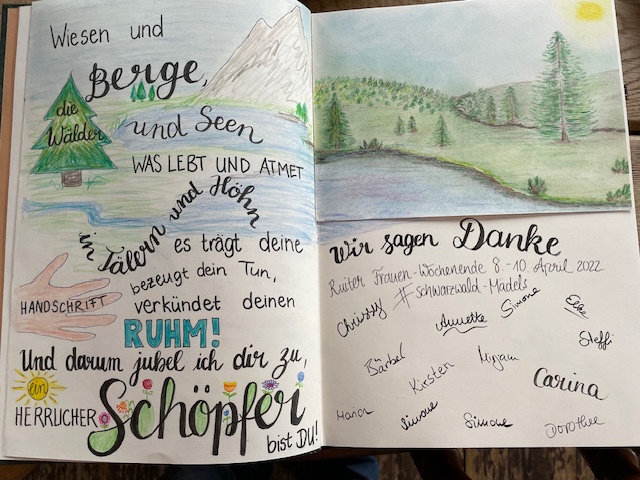 Wiesen und
Berge,
die
Wälder
und Seen
WAS LEBT UND ATMET
in Tälern und Höhn
es trägt deine
HANDSCHRIFT
bezeugt dein Tun,
verkündet deinen
RUHM!
Und darum jubel ich dir zu,
ein
HERRLICHER
Schöpfer
bist DU!
Wir sagen Danke
Ruiter Frauen-Wochenende 8.-10. April 2022
#Schwarzwald-Mädels
Chrissy
Annette
Simone
Elke
Steffi
Bärbel
Kirsten
Mirjam
Carina
Maria
Simone
Simone
Dorothee